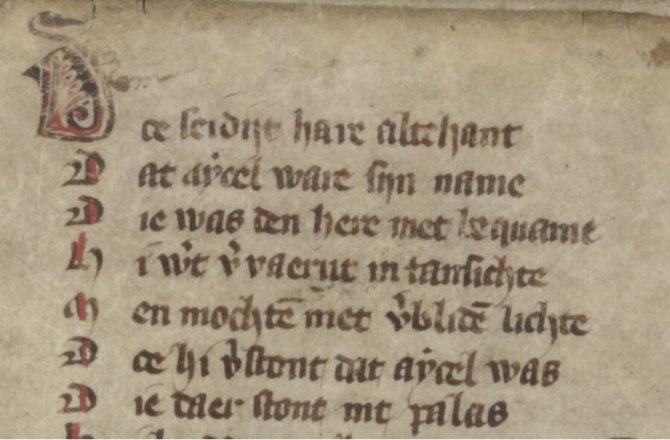 Doe seidijt hare altehant
Dat aycel ware sijn name
Die was den here niet bequame
hi w't v'vaernt int ansichte
Men mochtē niet v'blidē lichte
Doe hi v'stont dat aycel was
Die daer stont int palas